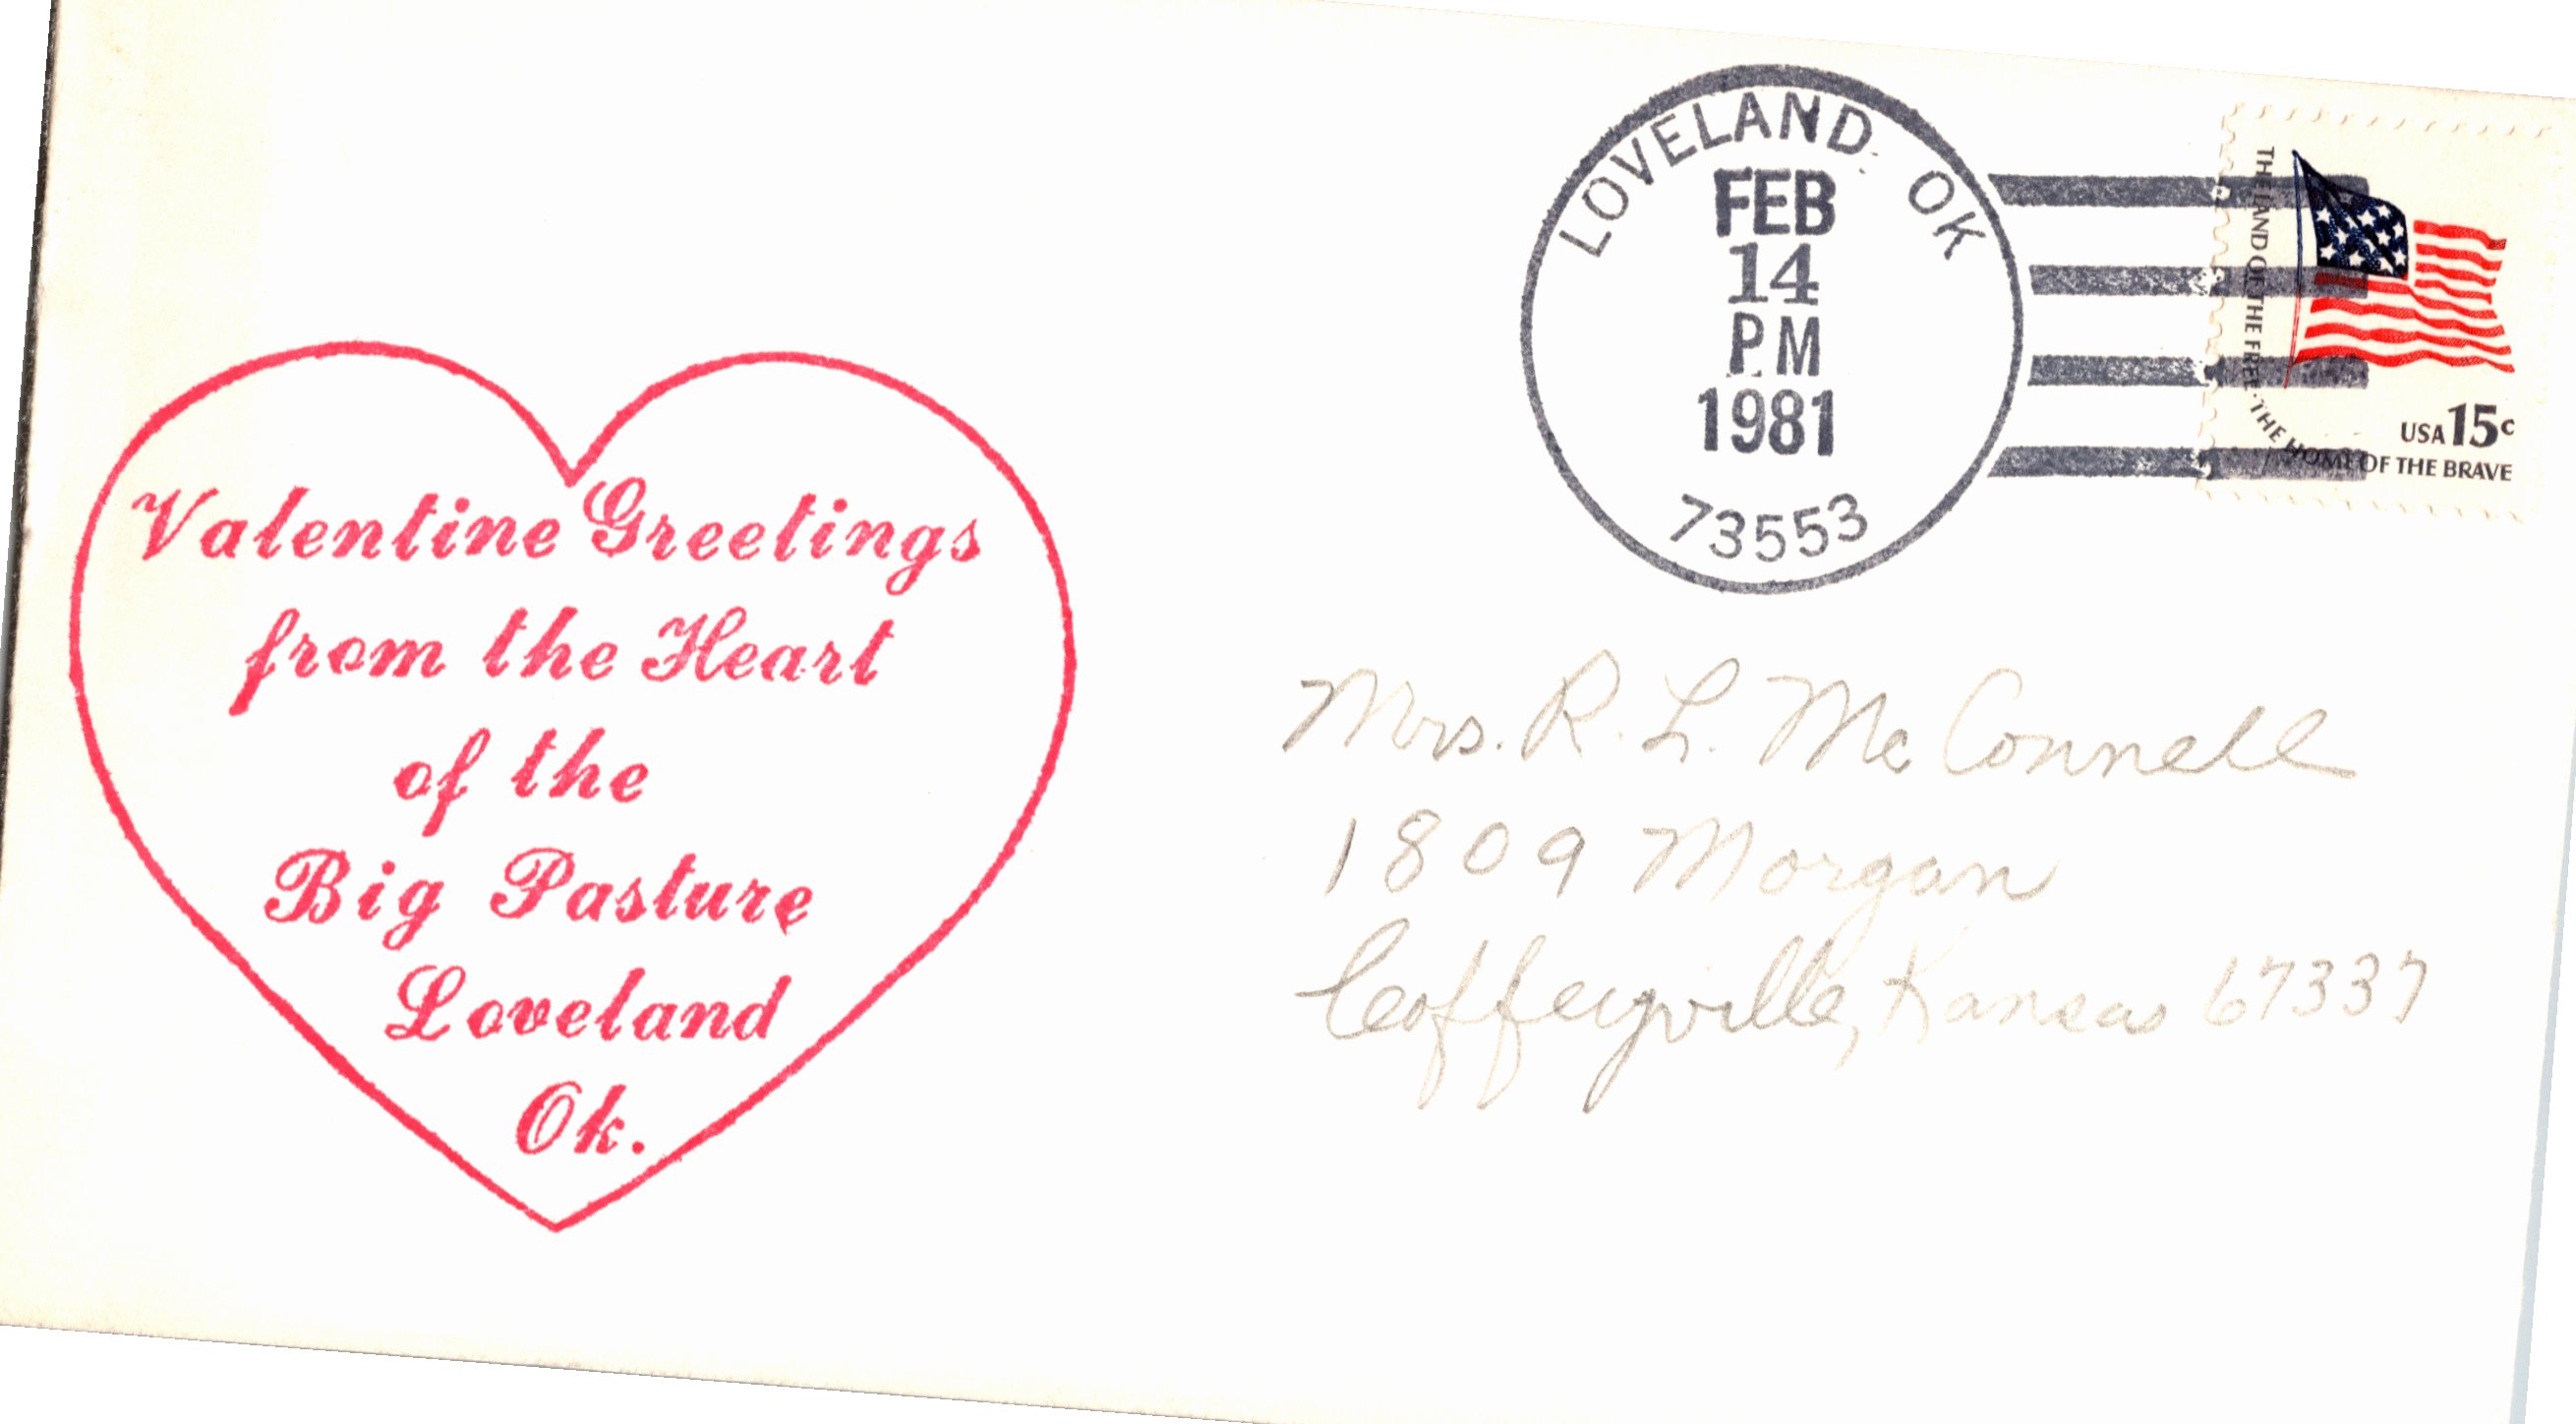 Valentine Greetings
from the Heart
of the
Big Pasture
Loveland
Ok.
LOVELAND, OK
FEB
14
PM
1981
73553
THE LAND OF THE FREE · THE HOME OF THE BRAVE
USA 15c
Mrs. R. L. McConnell
1809 Morgan
Coffeyville, Kansas 67337